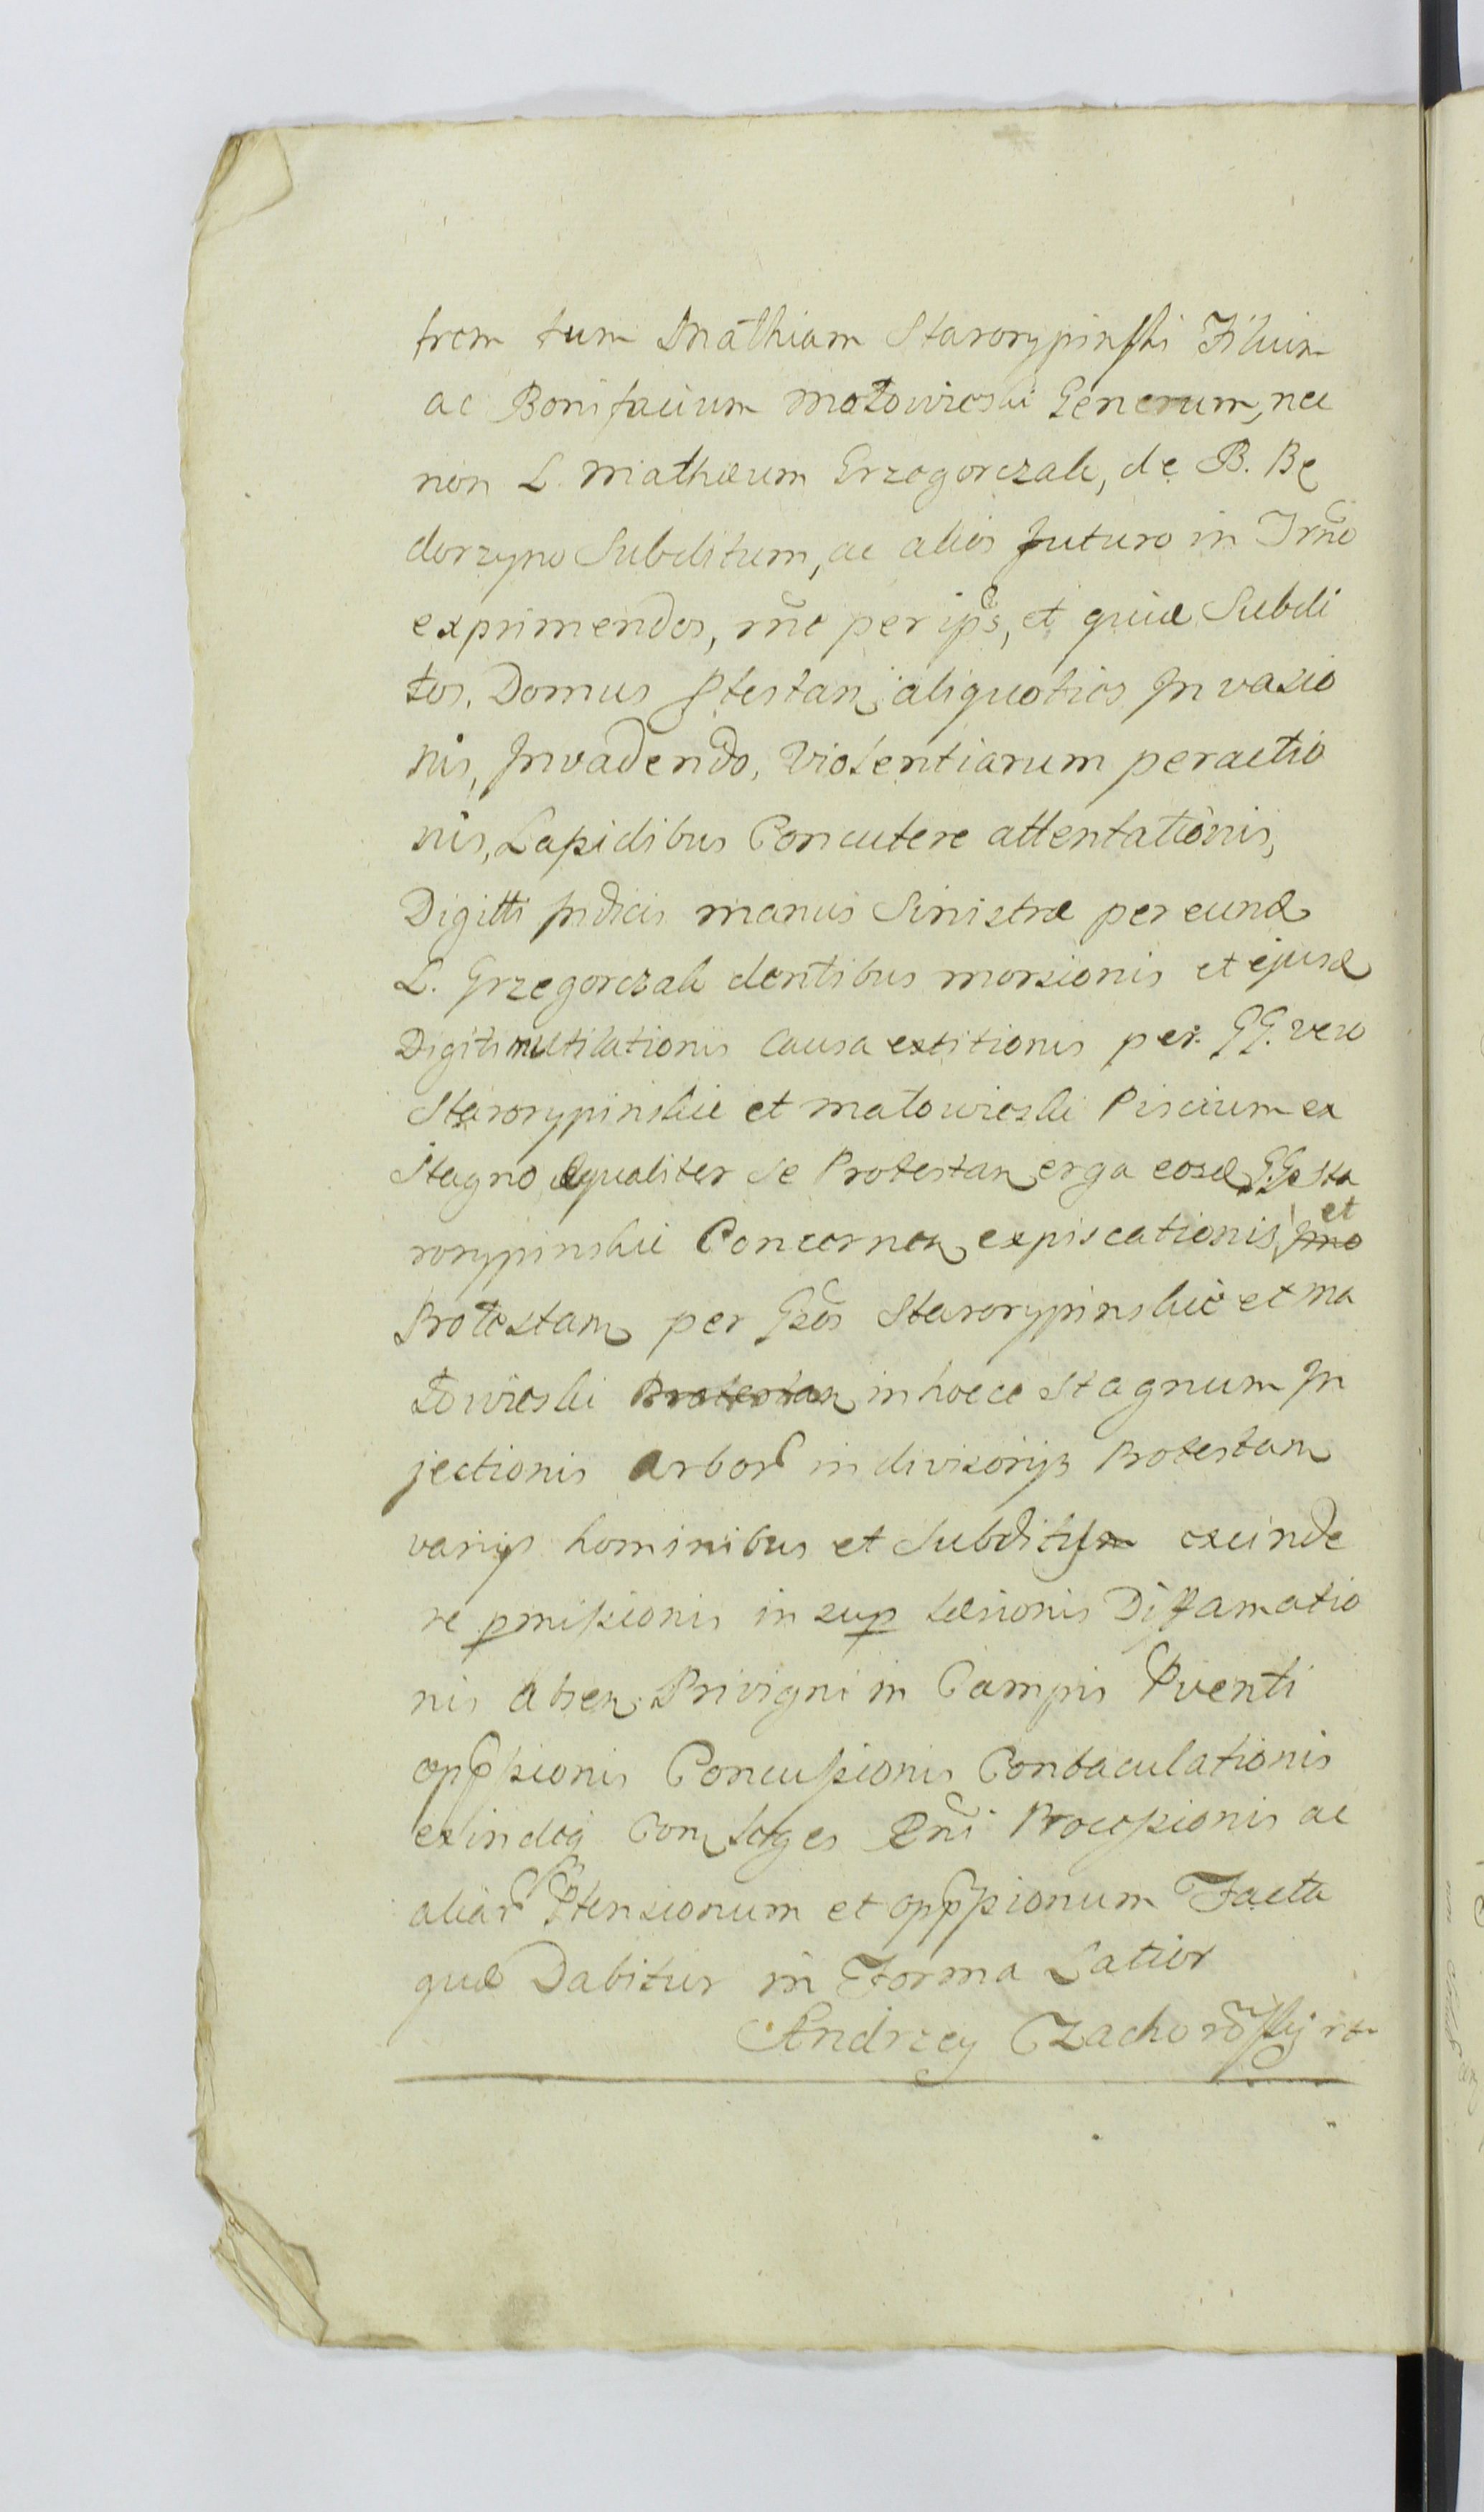 trem tum Mathiam Starorypinski Filium
ac Bonifacium Małowieski Generum, nec
non L. Mathæum Grzegorczak, de B. Be
dorzyno Subditum, ac alios futuro in Trno
exprimendos, rne per ipos, et quiæ Subdi
tos, Domus Ptestan aliquoties Invasio
nis, Invadendo, Violentiarum peractio
nis, Lapidibus Concutere attentationis,
Digitti Indicis manus Sinistræ per eund
L. Grzegorczak dentibus morsionis et ejusd
Digiti mutilationis Causa extitionis per GG. vero
Starorypinskie et Małowieski Piscium ex
Stagno æqualiter se Protestan erga eosd GG. Sta
rorypinskie Concernen expiscationis et
Protestam per Gsos Starorypinskie et Ma
łowieski in hocce Stagnum In
jectionis Arbor in divisorijs Protestam
varijs hominibus et Subditis exinde
re pmissionis in sup læsionis Diffamatio
nis absen Privigni in Campis Pventi
oppssionis Concussionis Conbaculationis
exindeq Con Leges Rni Processionis ac
aliar Ptensionum et oppssionum Facta
quæ Dabitur in Forma Latior
Andrzey Czachoroskij